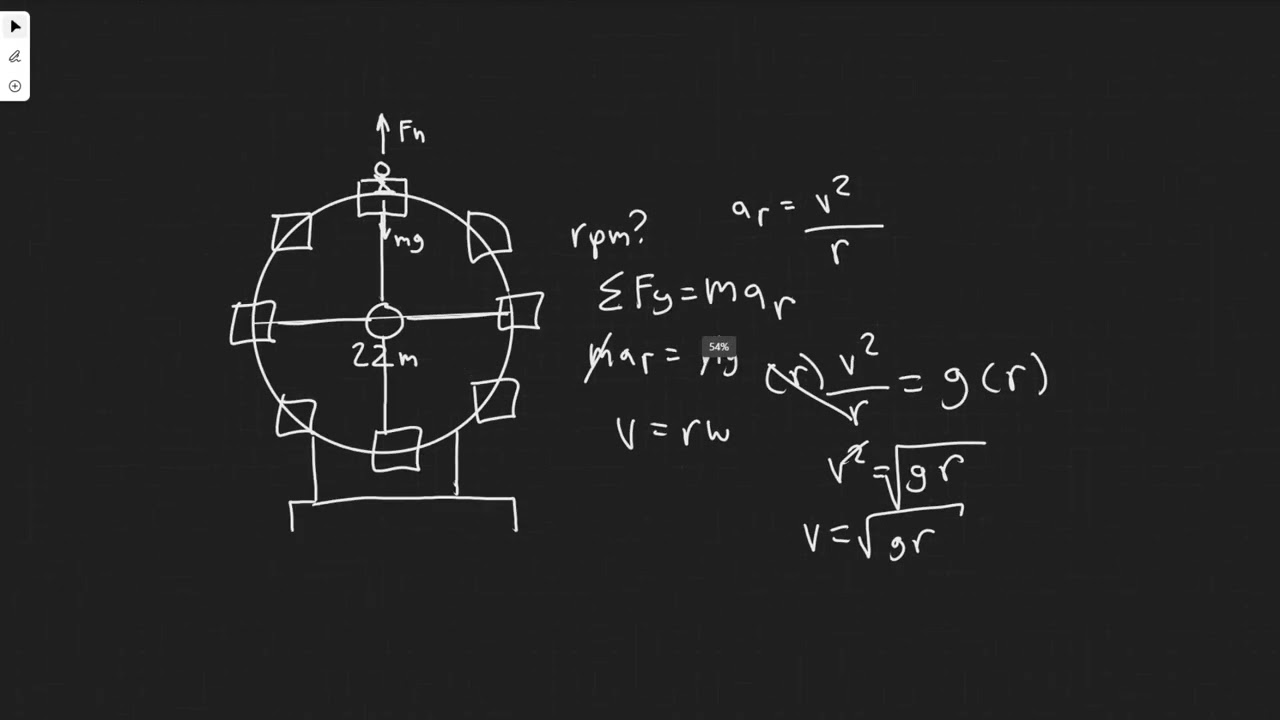 Fn
mg
22m
rpm?
a_r = v²/r
ΣFy = ma_r
ma_r = mg
54%
(r) v²/r = g(r)
v = rw
v² = √gr
v = √gr